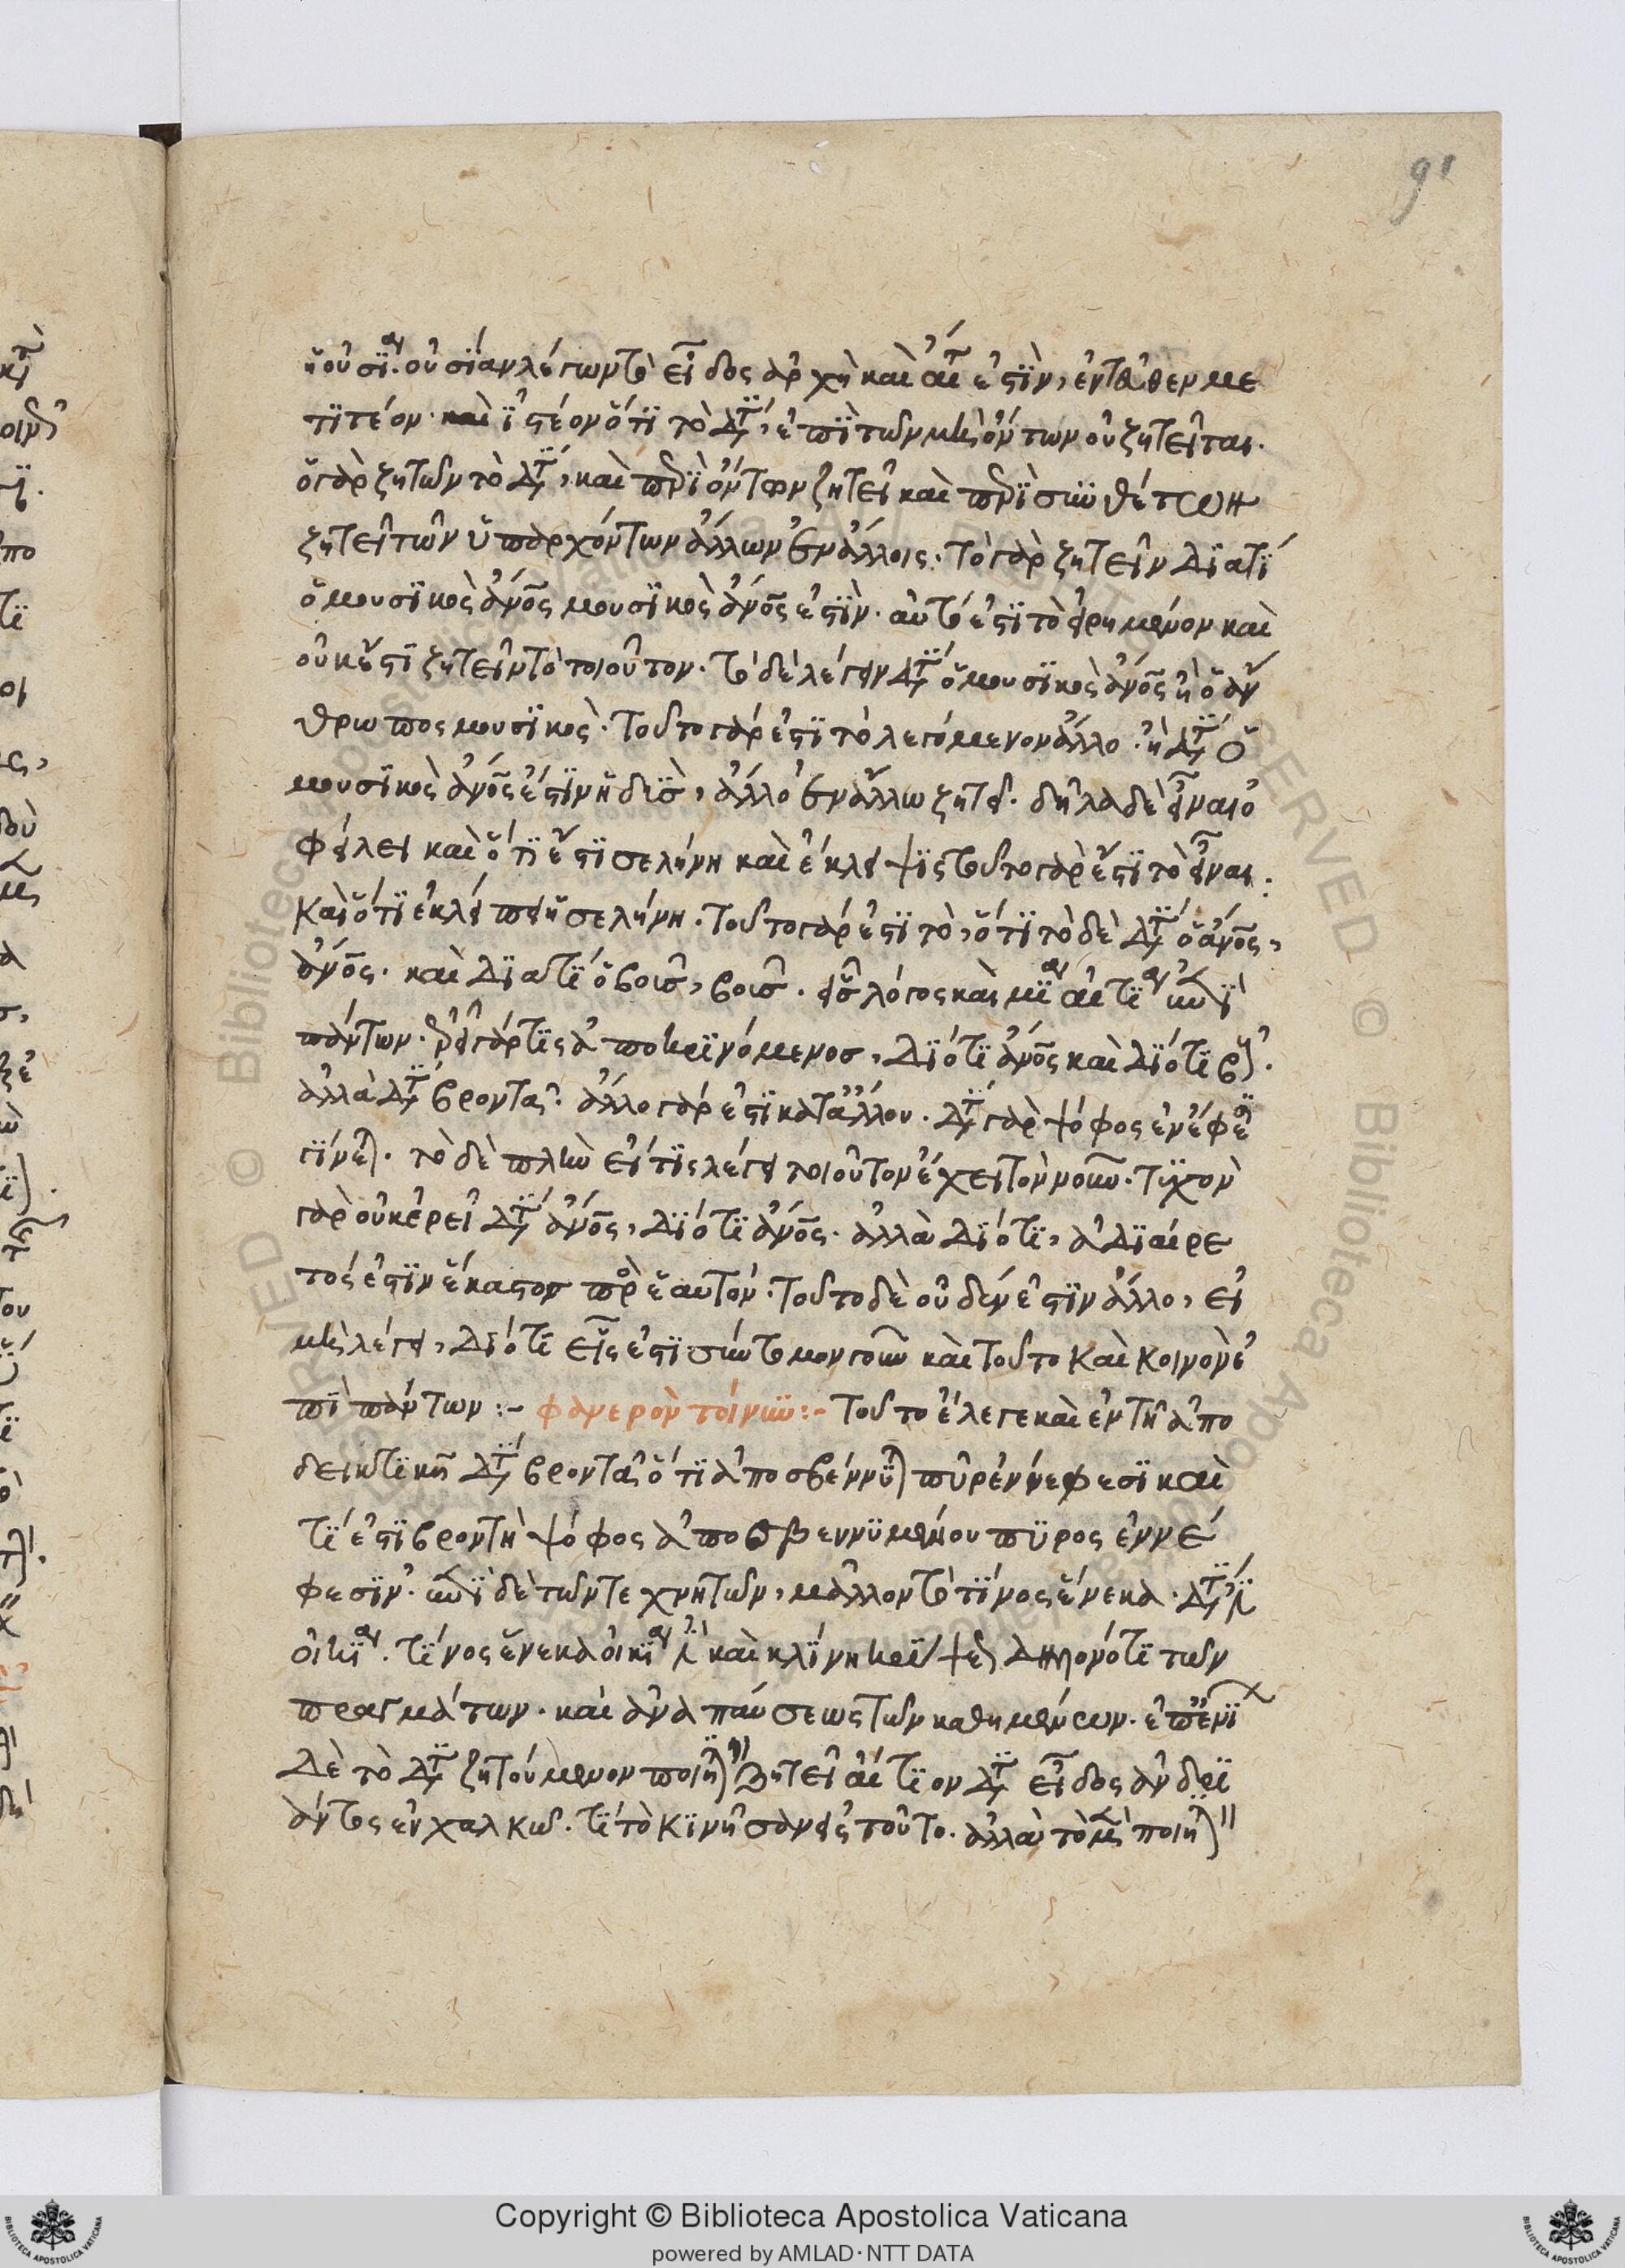 91
ἡ οὐσία. οὐσίαν λέγων τὸ εἶδος ἀρχὴ καὶ αἰτ ἐστὶν, ἐντεῦθεν με
τιτέον. καὶ ἰστέον ὅτι τὸ διατί, ἐπὶ τῶν μὴ ὄντων οὐ ζητεῖται.
ὁ γὰρ ζητῶν τὸ διατί, καὶ περὶ ὄντων ζητεῖ καὶ περὶ συνθέτων
ζητεῖ τῶν ὑπαρχόντων ἄλλων ἐν ἄλλοις. τὸ γὰρ ζητεῖν διατί
ὁ μουσικὸς ἄνος μουσικὸς ἄνος ἐστὶν. αὐτό ἐστι τὸ εἰρημένον καὶ
οὐκ ἔστι ζητεῖν τὸ τοιοῦτον. τὸ δὲ λέγειν διατί ὁ μουσικὸς ἄνος ἢ ὁ ἄν
θρωπος μουσικὸς. τοῦτο γάρ ἐστι τὸ λεγόμενον ἄλλο. ἢ διατί ὁ
μουσικὸς ἄνος ἐστὶν ἡδὺς, ἄλλο ἐν ἄλλω ζητεῖ. δῆλα δὲ εἶναι ὀ
φείλει καὶ ὅτι ἔστι σελήνη καὶ ἔκλειψις τοῦτο γὰρ ἔστι τὸ εἶναι.
καὶ ὅτι ἐκλείπει ἡ σελήνη. τοῦτο γάρ ἐστι τὸ, ὅτι τὸ δὲ διατί ὁ ἄνος,
ἄνος. καὶ διατί ὁ βοῦς, βοῦς. εἷς λόγος καὶ μία αἰτία ἐπὶ
πάντων. ἐρεῖ γάρ τις ἀποκρινόμενος, διότι ἄνος καὶ διότι β.
ἀλλὰ διατί βροντᾶ. ἄλλο γάρ ἐστι κατ' ἄλλου. διατί γὰρ ψόφος ἐν νέφει
γίνεται. τὸ δὲ πλὴν εἴ τις λέγει τοιοῦτον ἔχει τὸν νοῦν. τυχὸν
γὰρ οὐκ ἐρεῖ διατί ἄνος, διότι ἄνος. ἀλλὰ διότι, ἀδιαίρε
τός ἐστιν ἕκαστον πρὸς ἑαυτόν. τοῦτο δὲ οὐδέν ἐστιν ἄλλο, εἰ
μὴ λέγει, διότι εἷς ἐστι σύντομον γοῦν καὶ τοῦτο καὶ κοινὸν ἐ
πὶ πάντων :- φανερὸν τοίνυν :- τοῦτο ἔλεγε καὶ ἐν τῆ ἀπο
δεικτικῆ διατί βροντᾶ ὅτι ἀποσβέννυται πῦρ ἐν νέφεσι καὶ
τί ἐστι βροντὴ ψόφος ἀποσβεννυμένου πυρος ἐν νέ
φεσιν. ἐπὶ δὲ τῶν τεχνητῶν, μᾶλλον τὸ τίνος ἕνεκα. διατί
οἰκία. τίνος ἕνεκα οἰκία καὶ κλίνη κρύψεως δηλονότι τῶν
πραγμάτων. καὶ ἀναπαύσεως τῶν καθημένων. ἐπ' ἐνί
δὲ τὸ διατί ζητούμενον ποιητ ζητεῖ αἴτιον διατί εἶδος ἀνδρι
άντος ἐν χαλκῶ. τί τὸ κινῆσαν εἰς τοῦτο. ἀλλὰ τὸ μὲν ποιητ
Copyright © Biblioteca Apostolica Vaticana
powered by AMLAD·NTT DATA